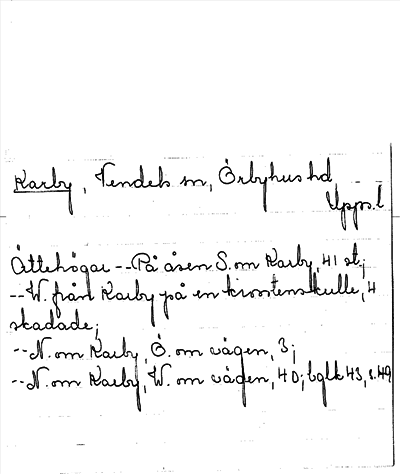 Karby, Vendels sn, Örbyhus hd
Upps.l
Ättehögar -- På åsen S. om Karby, 41 st;
-- W. från Karby på en kullle, 4
skadade;
-- N. om Karby, Ö. om vägen, 3;
-- N. om Karby, W. om vägen, 40; bglk 43, s. 49